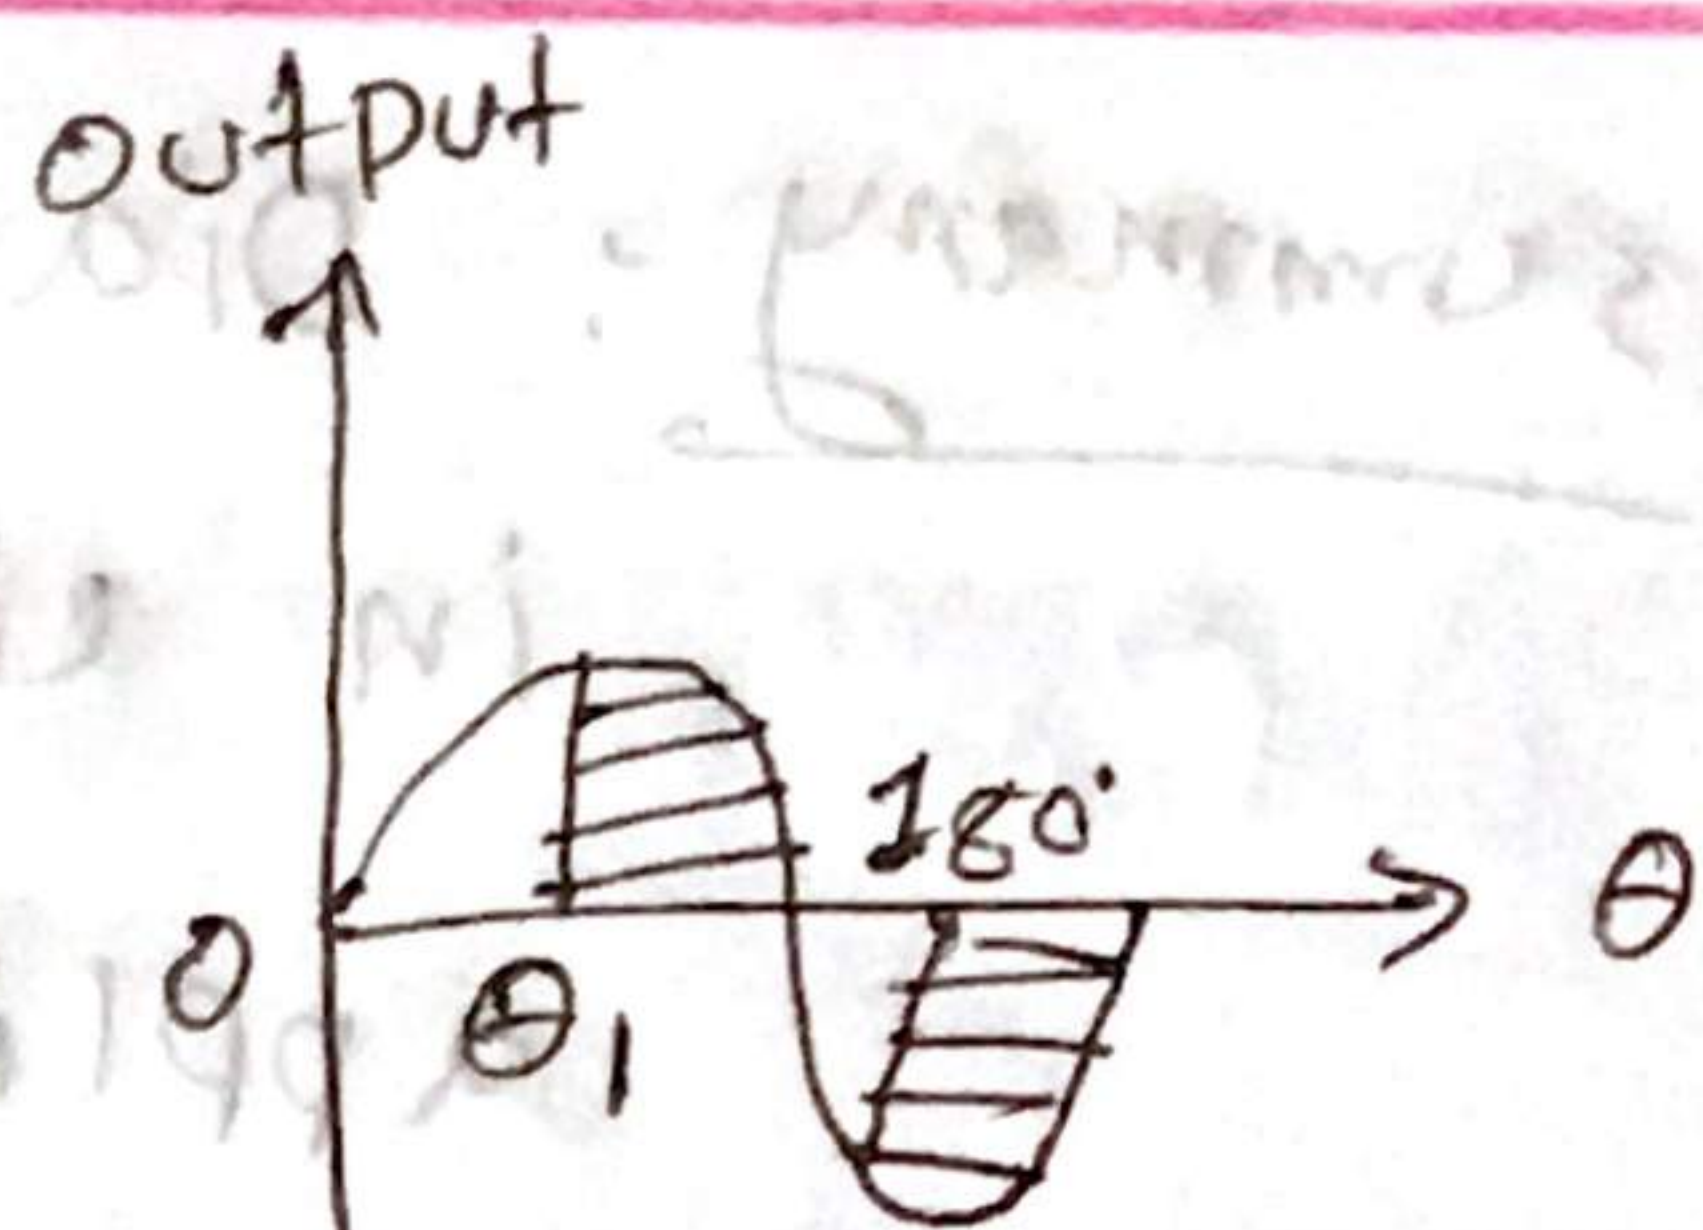 output
180°
θ
0
θ1